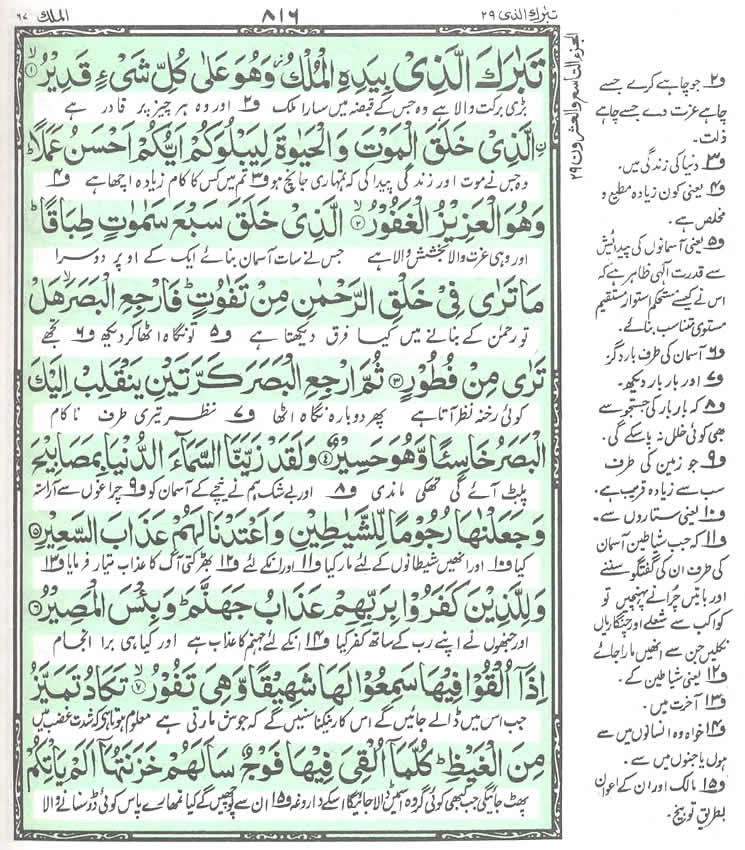 تبٰرك الذی ۲۹
۸۱۶
الملك ۶۷
تَبٰرَكَ الَّذِیْ بِیَدِهِ الْمُلْكُ وَهُوَ عَلٰی كُلِّ شَیْءٍ قَدِیْرُ ۙ﴿۱﴾
بڑی برکت والا ہے وہ جس کے قبضہ میں سارا ملک ف۲ اور وہ ہر چیز پر قادر ہے
الَّذِیْ خَلَقَ الْمَوْتَ وَالْحَیٰوةَ لِیَبْلُوَكُمْ اَیُّكُمْ اَحْسَنُ عَمَلًا ؕ
وہ جس نے موت اور زندگی پیدا کی کہ تمہاری جانچ ہو ف۳ تم میں کس کا کام زیادہ اچھا ہے ف۴
وَهُوَ الْعَزِیْزُ الْغَفُوْرُ ۙ﴿۲﴾ الَّذِیْ خَلَقَ سَبْعَ سَمٰوٰتٍ طِبَاقًا ؕ
اور وہی عزت والا بخشش والا ہے جس نے سات آسمان بنائے ایک کے اوپر دوسرا
مَا تَرٰی فِیْ خَلْقِ الرَّحْمٰنِ مِنْ تَفٰوُتٍ ؕ فَارْجِعِ الْبَصَرَ ۙ هَلْ
تو رحمٰن کے بنانے میں کیا فرق دیکھتا ہے ف۵ تو نگاہ اٹھا کر دیکھ ف۶ تجھے
تَرٰی مِنْ فُطُوْرٍ ﴿۳﴾ ثُمَّ ارْجِعِ الْبَصَرَ كَرَّتَیْنِ یَنْقَلِبْ اِلَیْكَ
کوئی رخنہ نظر آتا ہے پھر دوبارہ نگاہ اٹھا ف۷ نظر تیری طرف ناکام
الْبَصَرُ خَاسِئًا وَّهُوَ حَسِیْرٌ ﴿۴﴾ وَلَقَدْ زَیَّنَّا السَّمَآءَ الدُّنْیَا بِمَصَابِیْحَ
پلٹ آئے گی تھکی ماندی ف۸ اور بے شک ہم نے نیچے کے آسمان کو ف۹ چراغوں سے آراستہ
وَجَعَلْنٰهَا رُجُوْمًا لِّلشَّیٰطِیْنِ وَاَعْتَدْنَا لَهُمْ عَذَابَ السَّعِیْرِ ﴿۵﴾
کیا ف۱۰ اور انھیں شیطانوں کے لئے مار کیا ف۱۱ اور انکے لئے ف۱۲ بھڑکتی آگ کا عذاب تیار فرمایا ف۱۳
وَلِلَّذِیْنَ كَفَرُوْا بِرَبِّهِمْ عَذَابُ جَهَنَّمَ ؕ وَبِئْسَ الْمَصِیْرُ ﴿۶﴾
اور جنھوں نے اپنے رب کے ساتھ کفر کیا ف۱۴ انکے لئے جہنم کا عذاب ہے اور کیا ہی برا انجام
اِذَاۤ اُلْقُوْا فِیْهَا سَمِعُوْا لَهَا شَهِیْقًا وَّهِیَ تَفُوْرُ ۙ﴿۷﴾ تَكَادُ تَمَیَّزُ
جب اس میں ڈالے جائیں گے اس کا رینکنا سنیں گے کہ جوش مارتی ہے معلوم ہوتا ہے کہ شدت غضب میں
مِنَ الْغَیْظِ ؕ كُلَّمَاۤ اُلْقِیَ فِیْهَا فَوْجٌ سَاَلَهُمْ خَزَنَتُهَاۤ اَلَمْ یَاْتِكُمْ
پھٹ جائیگی جب کبھی کوئی گروہ اس میں ڈالا جائیگا اسکے داروغہ ف۱۵ ان سے پوچھیں گے کیا تمھارے پاس کوئی ڈر سنانے والا
الجزء التاسع والعشرون ۲۹
ف۲ جو چاہے کرے جسے
چاہے عزت دے جسے چاہے
ذلت۔
ف۳ دنیا کی زندگی میں۔
ف۴ یعنی کون زیادہ مطیع و
مخلص ہے۔
ف۵ یعنی آسمانوں کی پیدائش
سے قدرت الٰہی ظاہر ہے کہ
اس نے کیسے مستحکم استوار مستقیم
مستوی متناسب بنائے۔
ف۶ آسمان کی طرف بار دگر
ف۷ اور بار بار دیکھ۔
ف۸ کہ بار بار کی جستجو سے
بھی کوئی خلل نہ پاسکے گی۔
ف۹ جو زمین کی طرف
سب سے زیادہ قریب ہے۔
ف۱۰ یعنی ستاروں سے۔
ف۱۱ کہ جب شیاطین آسمان
کی طرف ان کی گفتگو سننے
اور باتیں چرانے پہنچیں تو
کواکب سے شعلے اور چنگاریاں
نکلیں جن سے انھیں مارا جائے
ف۱۲ یعنی شیاطین کے۔
ف۱۳ آخرت میں۔
ف۱۴ خواہ وہ انسانوں میں سے
ہوں یا جنوں میں سے۔
ف۱۵ مالک اور ان کے اعوان
بطریق توبیخ۔